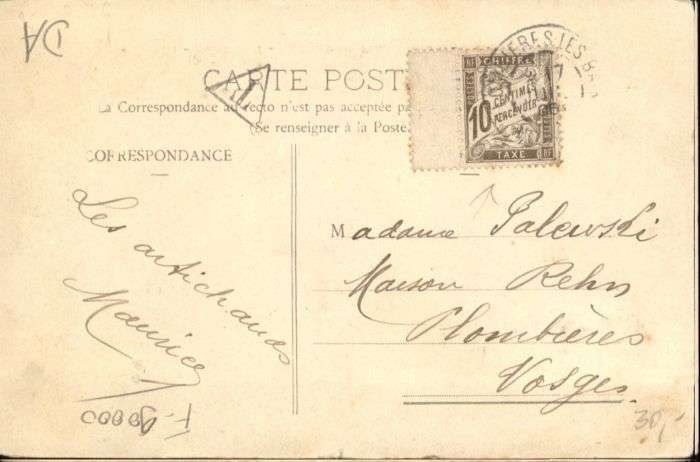 DA
CARTE POST
La Correspondance au recto n'est pas acceptée pa
(Se renseigner à la Poste.
CORRESPONDANCE
T
CHIFFRE
10
CENTIMES
A PERCEVOIR
TAXE
Les artichauds
Maurice
Madame Palewski
Maison Rehn
Plombières
Vosges
30,-
F. 90000